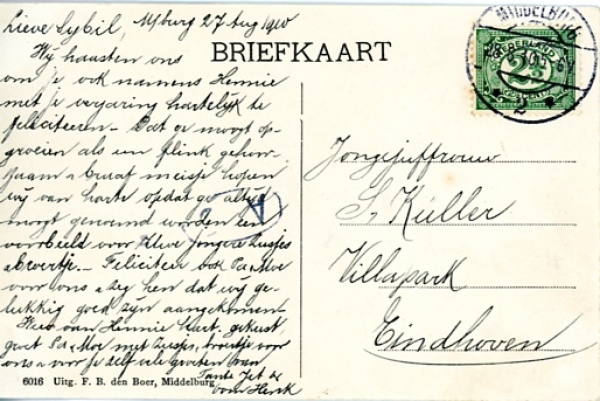 Lieve Sybil, M/burg 27 Aug 1910
Wij haasten ons
om je ook namens Hennie
met je verjaring hartelijk te
feliciteeren - Dat ge moogt op-
groeien als een flink gehoor-
zaam & braaf meisje hopen
wij van harte opdat ge altijd
moogt genoemd worden een
voorbeeld voor Uwe jongere zusjes
& broertje. - Feliciteer ook Pa & Moe
voor ons & zeg hen dat wij ge-
lukkig goed zijn aangekomen
Wees van Hennie hart. gekust,
groet Pa & Moe met zusjes, broertje voor
ons & voor je zelf vele groeten van
Tante Jet &
oom Henk
6016 Uitg. F. B. den Boer, Middelburg
BRIEFKAART
MIDDELBURG
NEDERLAND
2½
CENT
2
A
Jongejuffrouw
S. Küller
Villapark
Eindhoven